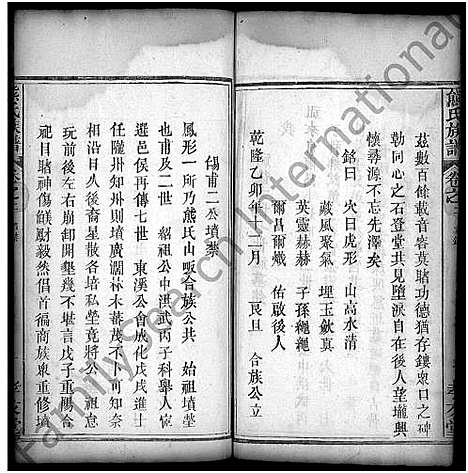 熊氏族譜
卷之
茲數百餘載音容莫睹功德猶存鏤衆口之碑
勒同心之石登堂共見墮淚自在後人望壠興
懷尋源不忘先澤矣
銘曰 穴日虎形 山高水清
藏風聚氣 埋玉歛真
英靈赫赫 子孫繩繩
爾昌爾熾 佑啟後人
乾隆乙卯年十二月 艮旦 合族公立
錫甫二公墳塋
鳳形一所乃熊氏山畈合族公共 始祖墳塋
也甫及二世 紹祖公中洪武丙子科舉人宦
選邑侯再傳七世 東溪公會成化戊戌進士
任隴卅知卅則墳廣濶林木蕃茂不卜可知
相沿日久後裔各培私塋竟將公 祖怠
玩前後左右崩卸開墾幾不堪言戊子重陽合
祀目睹神傷鯁尉毅然倡首徧商族衆重修墳
FamilySearch International